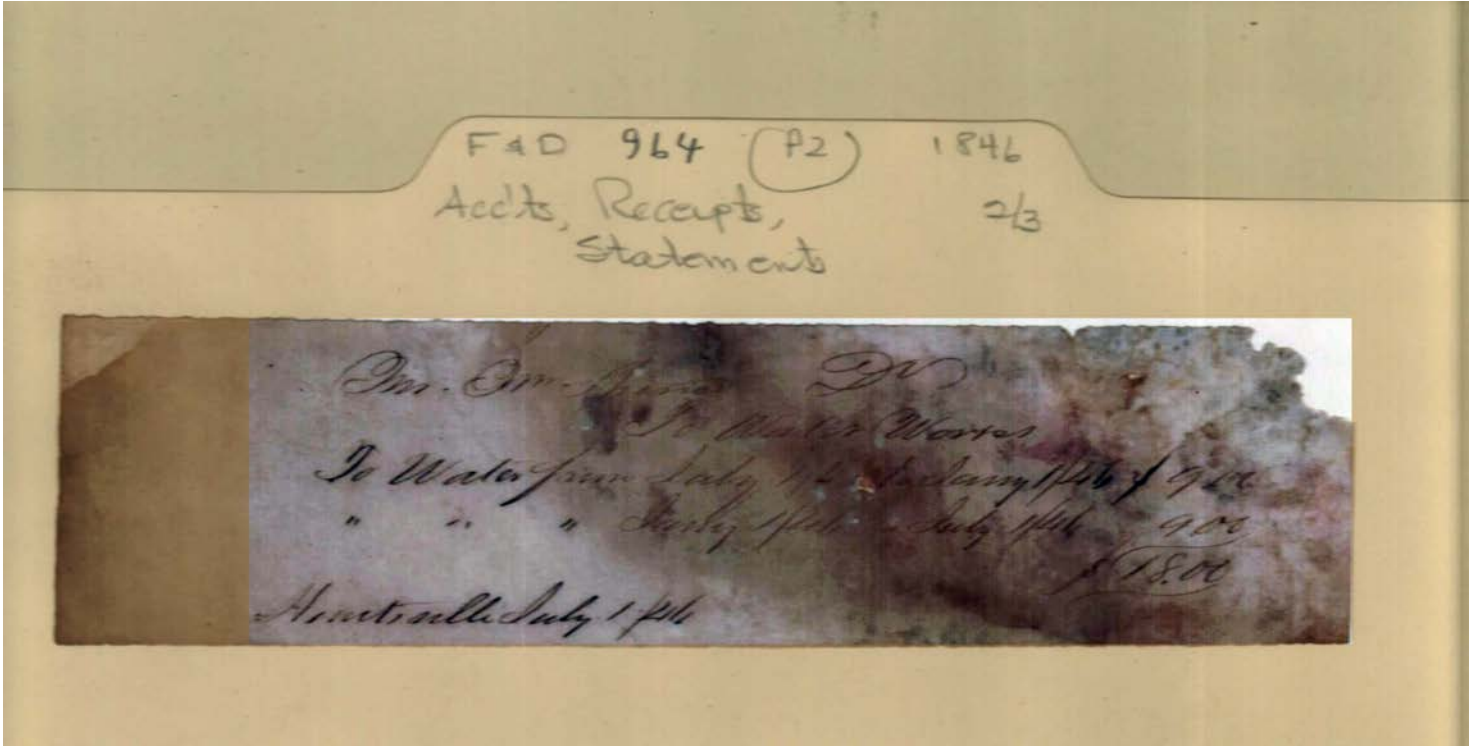 F & D 964 (P2) 1846
Acc'ts, Receipts, 2/3
Statements
Mr. Wm. Dr
To Water Works
To Water from July 1/45 to Jany 1/46 $ 9.00
" " " Jany 1/46 " July 1/46 9.00
$ 18.00
Huntsville July 1/46